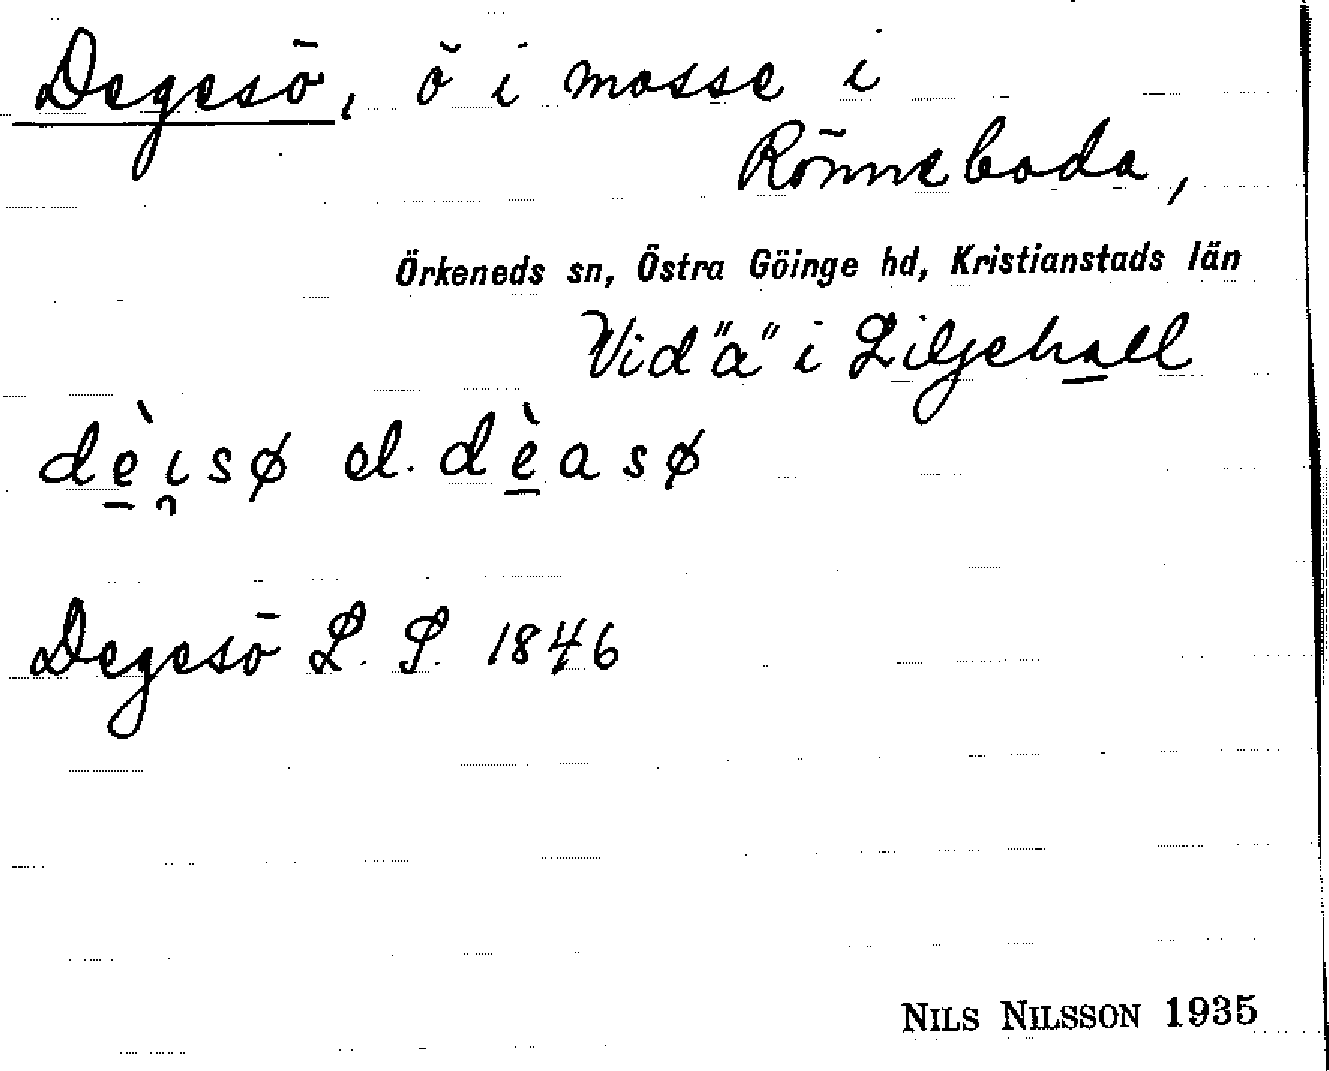 Degesö, ö i mosse i
Rönneboda,
Örkeneds sn, Östra Göinge hd, Kristianstads län
Vid "a" i Liljehall
dèi̯sø el. dèasø
Degesö L. S. 1846
NILS NILSSON 1935